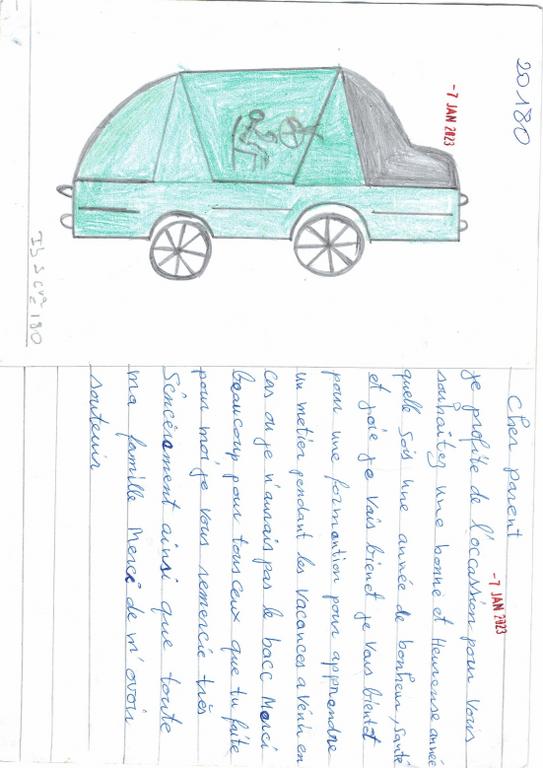 20180
-7 JAN 2023
Cher parent
-7 JAN 2023
je profite de l'occassion pour vous
souhaitez une bonne et Heureuse année
quelle Sois une année de bonheur, Santé
et joie je Vais bienet je Vais bientot
pour une formantion pour apprendre
un metier pendant les vacances a Vénir en
cas ou je n'aurais pas le bacc Merci
beaucoup pour tous ceux que tu faite
pour moi je vous remercie très
Sincèrement ainsi que toute
ma famille Merci de m'avoir
soutenir